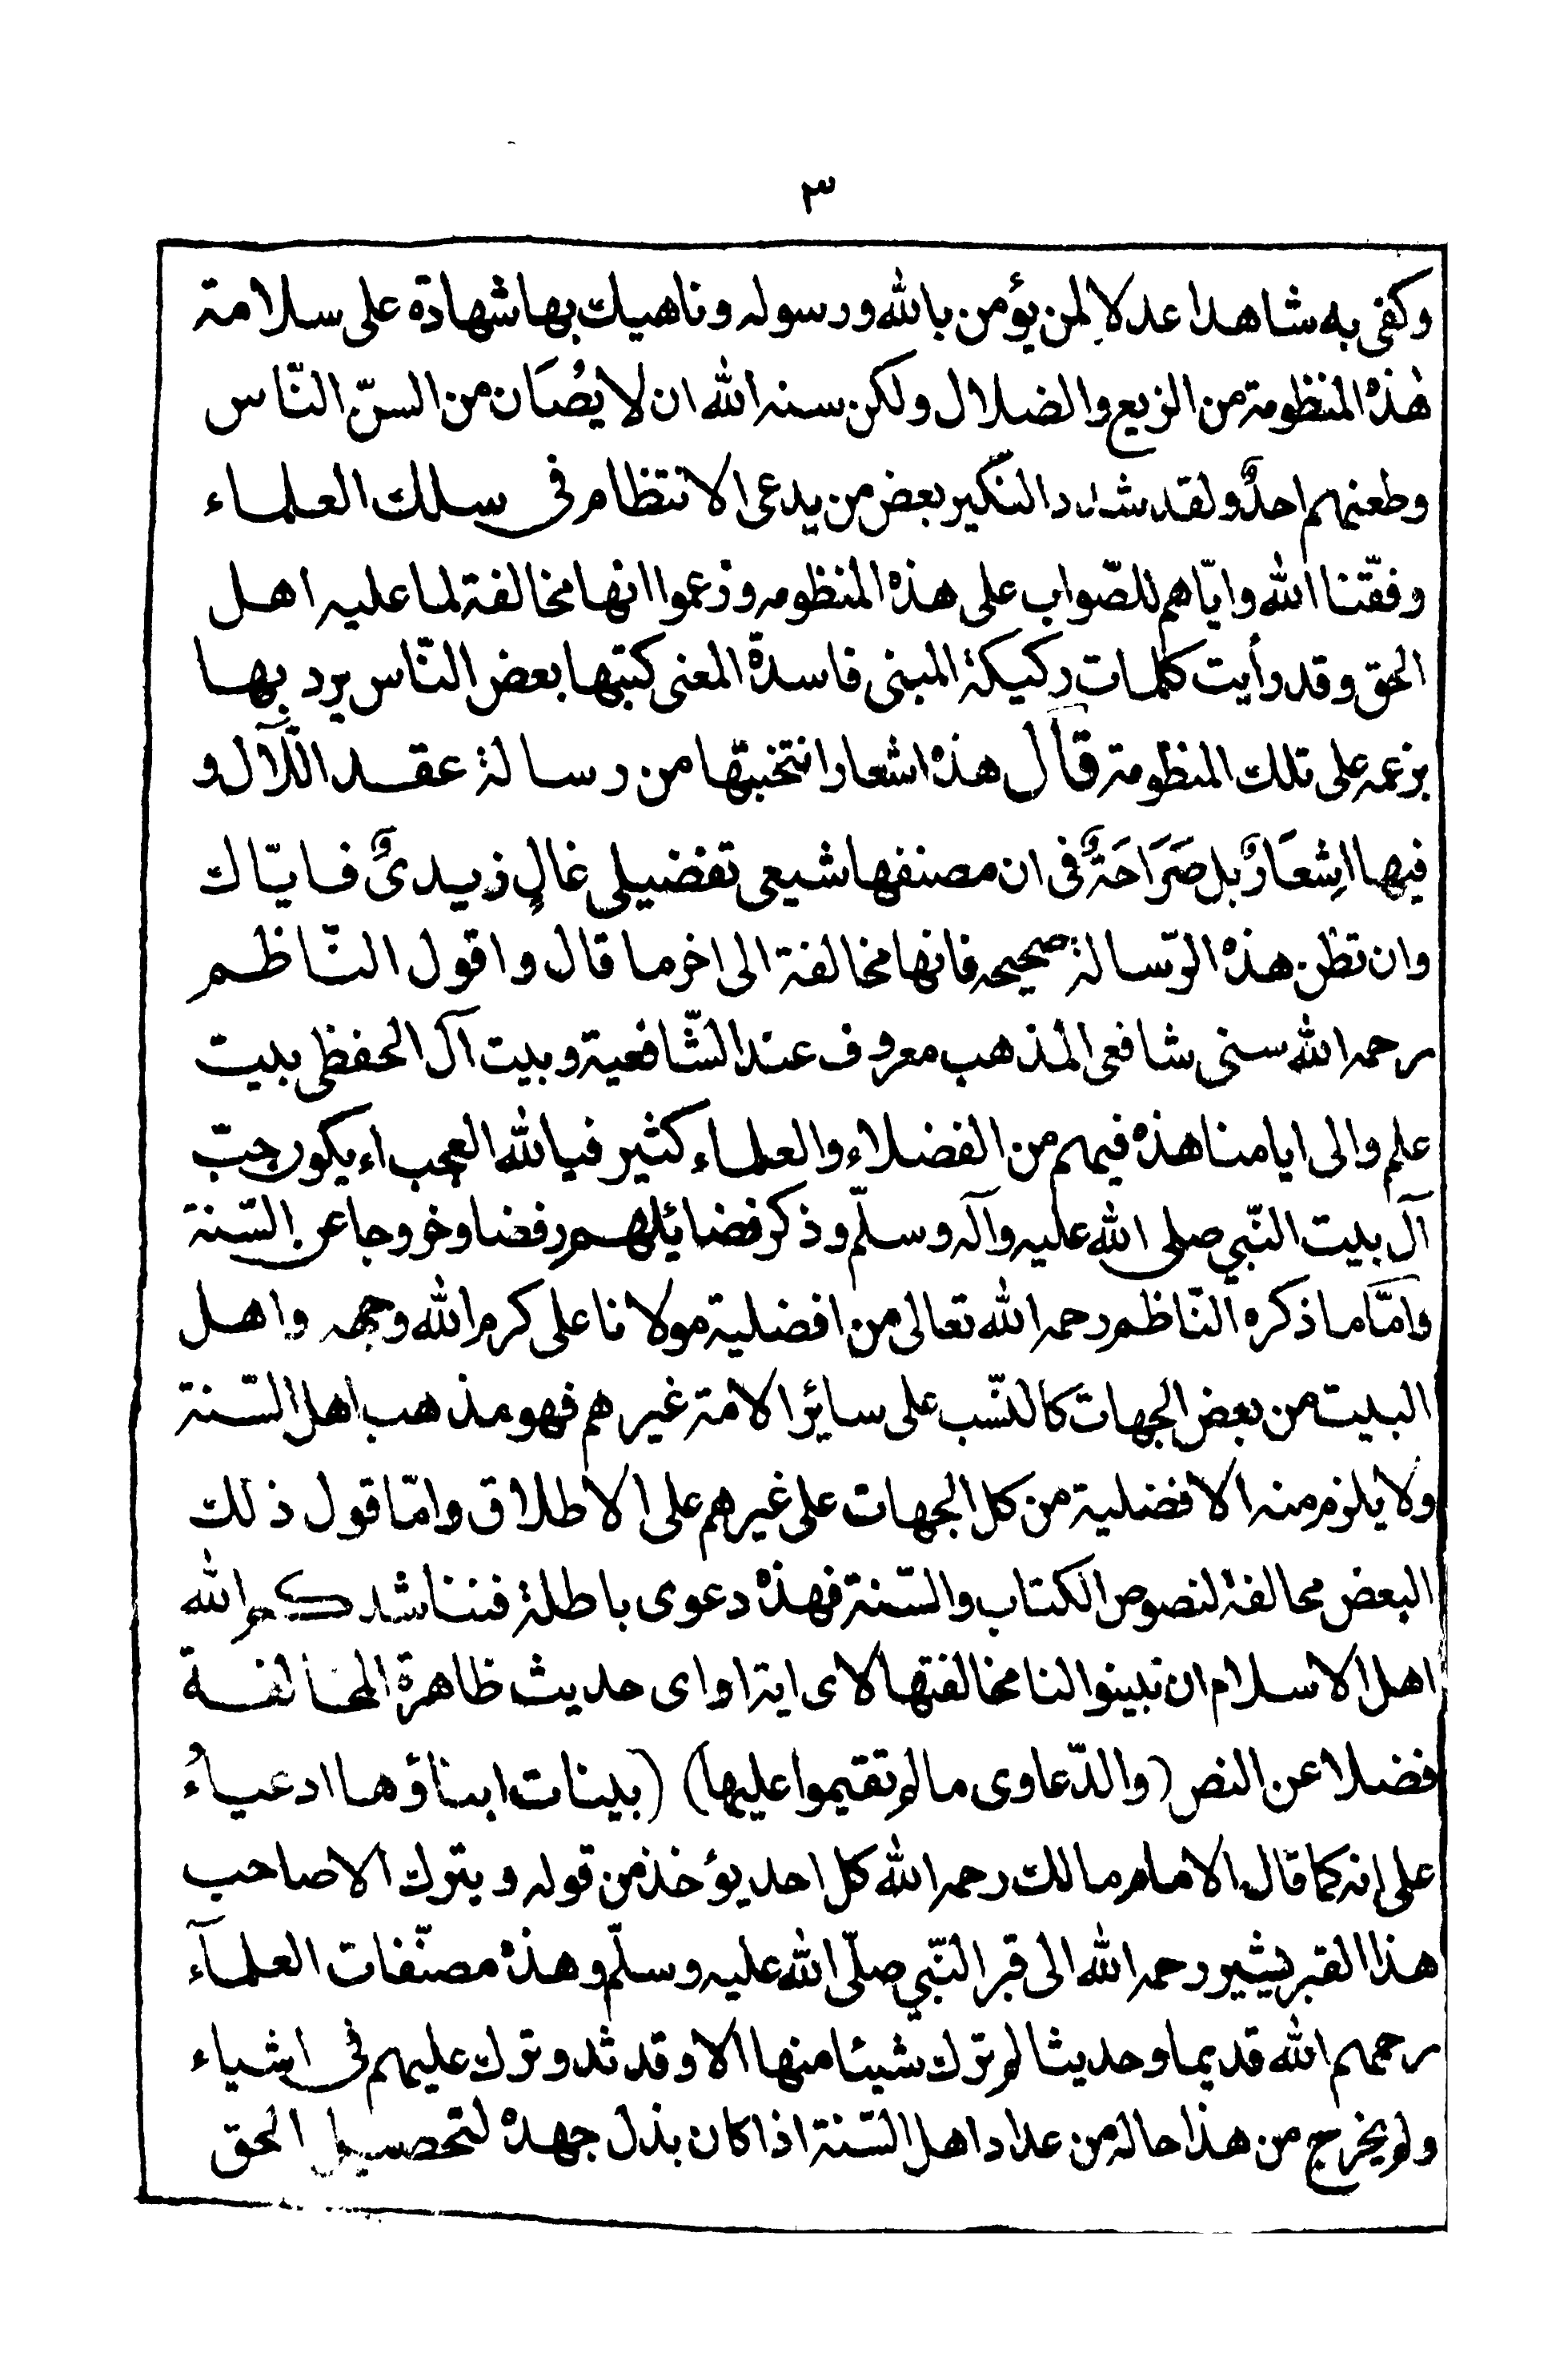 ٣
وكفى به شاهدا عدلا لمن يؤمن بالله ورسوله وناهيك بها شهادة على سلامة
هذه المنظومة من الزيع والضلال ولكن سنه الله ان لا يُصَان من السنّ النّاس
وطعنهم احدٌ ولقد شدد النكير بعض من يدعى الانتظام فى سلك العلماء
وفقّنا الله وايّاهم للصّواب على هذه المنظومه وزعموا انها مخالفة لما عليه اهل
الحق وقد رأيت كلمات ركيكة المبنى فاسدة المعنى كتبها بعض النّاس يرد بها
بزعمه على تلك المنظومة قال هذه اشعار انتخبتها من رسالة عقد اللآل و
فيها اِشعَارٌ بل صَرَاحَةٌ فى ان مصنفها شيعى تفضيلى غالٍ زيدىٌ فايّاك
وان تظن هذه الرّسالة صحيحه فانها مخالفة الى اخر ما قال واقول النّاظم
رحمه الله سنى شافعى المذهب معروف عند الشّافعية وبيت آل الحفظى بيت
علم والى ايامنا هذه فيهم من الفضلاء والعلماء كثير فيالله العجب اء يكور حبّ
آل بيت النّبي صلى الله عليه وآله وسلّم وذكر فضائلهم رفضا وخروجا عن السّنة
وامّا ما ذكره النّاظم رحمه الله تعالى من افضلية مولانا على كرم الله وجهه واهل
البيت من بعض الجهات كالنّسب على سائر الامة غيرهم فهو مذهب اهل السّنة
ولا يلزم منه الافضلية من كل الجهات على غيرهم على الاطلاق وامّا قول ذلك
البعض مخالفة لنصوص الكتاب والسّنة فهذه دعوى باطلة فنناشدكم الله
اهل الاسلام ان تبينوا لنا مخالفتها لاى اية او اى حديث ظاهرة المخالفة
فضلا عن النص (والدّعاوى ما لم تقيموا عليها) (بينات ابناؤها ادعياءُ
على انه كما قال الامام مالك رحمه الله كل احد يؤخذ من قوله ويترك الا صاحب
هذا القبر يشير رحمه الله الى قبر النّبي صلّى الله عليه وسلّم وهذه مصنّفات العلمآء
رحمهم الله قديما وحديثا لم ترك شيئا منها الا وقد ثد وترك عليهم فى اشياء
ولم يخرج من هذا حاله من عداد اهل السّنة اذا كان بذل جهده لتحصيل الحق